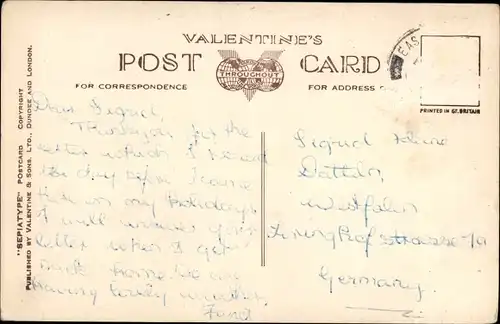 VALENTINE'S
POST CARD
THROUGHOUT
FOR CORRESPONDENCE
FOR ADDRESS
EAS
PRINTED IN GT. BRITAIN
"SEPIATYPE" POSTCARD COPYRIGHT
PUBLISHED BY VALENTINE & SONS. LTD., DUNDEE AND LONDON.
Dear Sigrid,
Thankyou for the
letter which I
the day before I came
here on my holidays
I will answer your
letter when I get
back home. We are
having lovely weather
Sigrid
Datteln,
Westfalen
strasse
Germany.